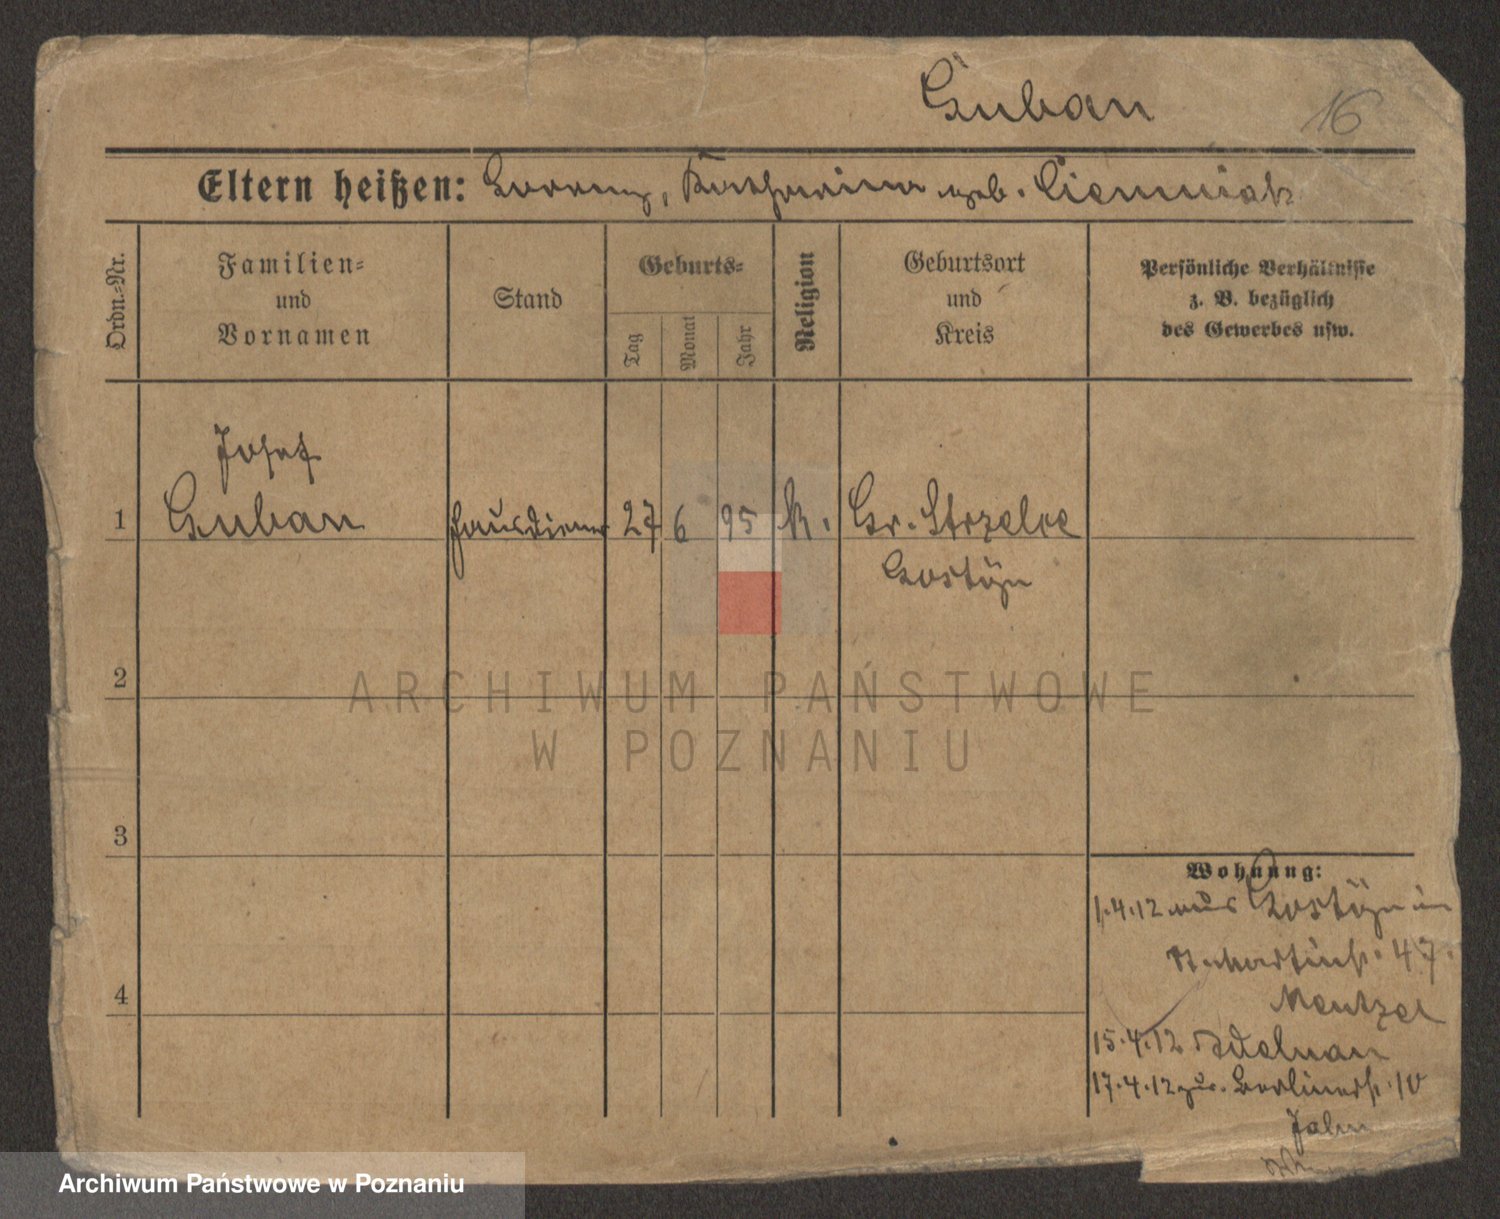 Guban
16
Eltern heißen: Lorenz, Katharina geb. Ciemniak
Ordn.-Nr.
Familien-
und
Vornamen
Stand
Geburts-
Tag
Monat
Jahr
Religion
Geburtsort
und
Kreis
Persönliche Verhältnisse
z. B. bezüglich
des Gewerbes usw.
Josef
1 Guban Hausdiener 27 6 95 k. Gr. Strzelce
Gostÿn
2
3
4
Wohnung:
1.4.12 aus Gostÿn in
St. Martinstr. 47.
Mentzel
15.4.12 Adelnau
17.4.12 zur. Berlinerstr. 10
Jahn
ARCHIWUM PAŃSTWOWE
W POZNANIU
Archiwum Państwowe w Poznaniu